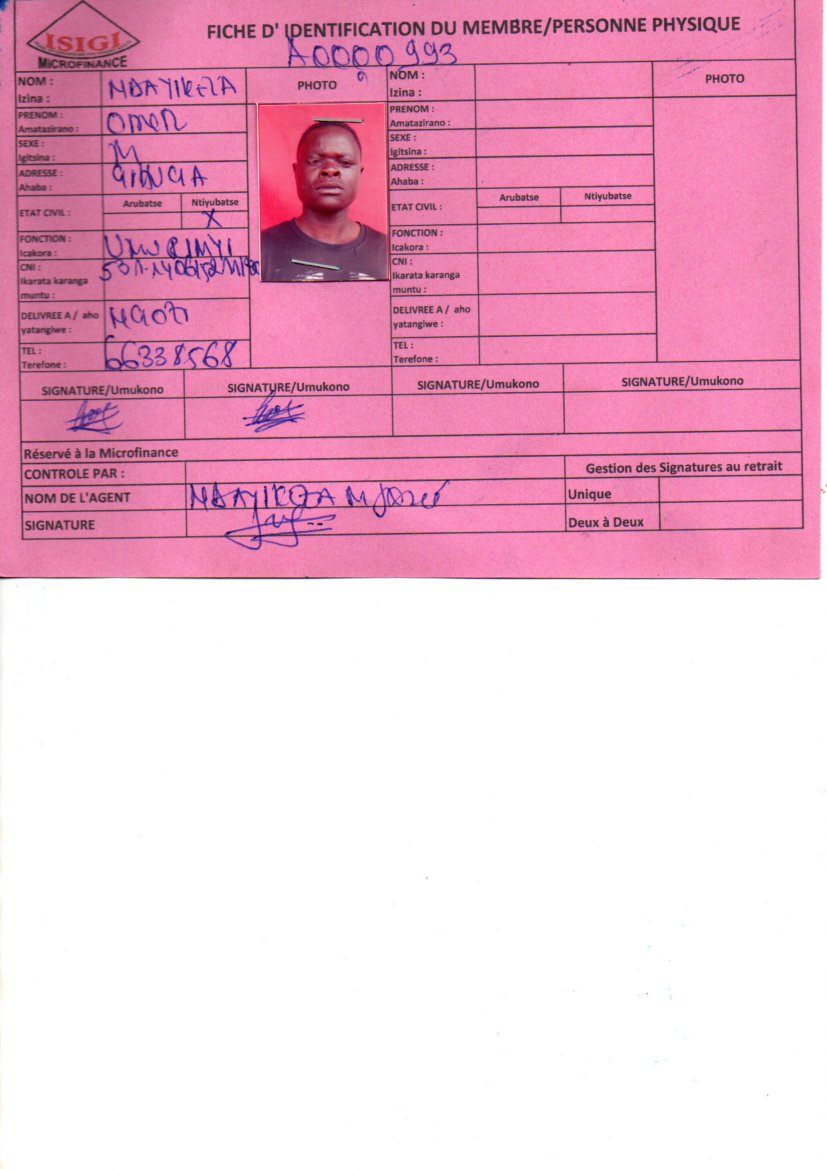 ISIGI
MICROFINANCE
FICHE D' IDENTIFICATION DU MEMBRE/PERSONNE PHYSIQUE
A0000993
NOM :
Izina :
NDAYIKEZA
PHOTO
NOM :
Izina :
PHOTO
PRENOM :
Amatazirano :
OMER
PRENOM :
Amatazirano :
SEXE :
Igitsina :
M
SEXE :
Igitsina :
ADRESSE :
Ahaba :
ADRESSE :
Ahaba :
ETAT CIVIL :
Arubatse
Ntiyubatse
X
ETAT CIVIL :
Arubatse
Ntiyubatse
FONCTION :
Icakora :
UMURIMYI
FONCTION :
Icakora :
CNI :
Ikarata karanga
muntu :
CNI :
Ikarata karanga
muntu :
DELIVREE A / aho
yatangiwe :
NGOZI
DELIVREE A / aho
yatangiwe :
TEL :
Terefone :
66338568
TEL :
Terefone :
SIGNATURE/Umukono
SIGNATURE/Umukono
SIGNATURE/Umukono
SIGNATURE/Umukono
Réservé à la Microfinance
CONTROLE PAR :
Gestion des Signatures au retrait
NOM DE L'AGENT
NDAYIKEZA M José
Unique
SIGNATURE
Deux à Deux